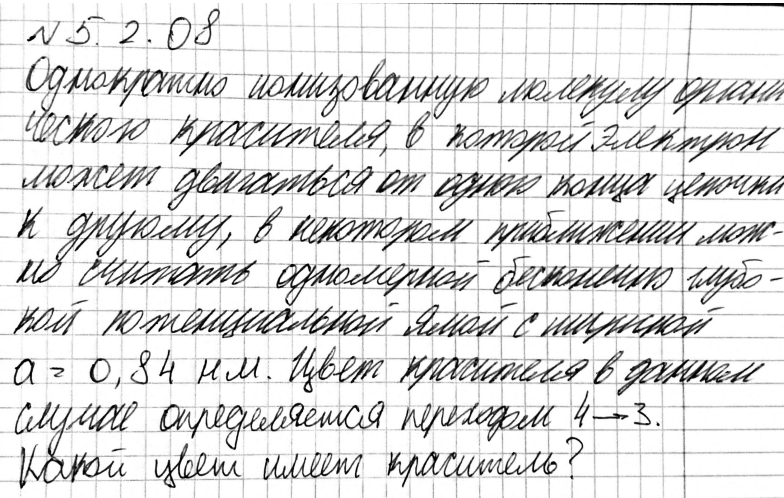 № 5.2.08
Однократно ионизованную молекулу органи
ческого красителя, в которой электрон
может двигаться от одного конца цепочки
к другому, в некотором приближении мож-
но считать одномерной бесконечно глубо-
кой потенциальной ямой с шириной
a = 0,84 нм. Цвет красителя в данном
случае определяется переходом 4→3.
Какой цвет имеет краситель?